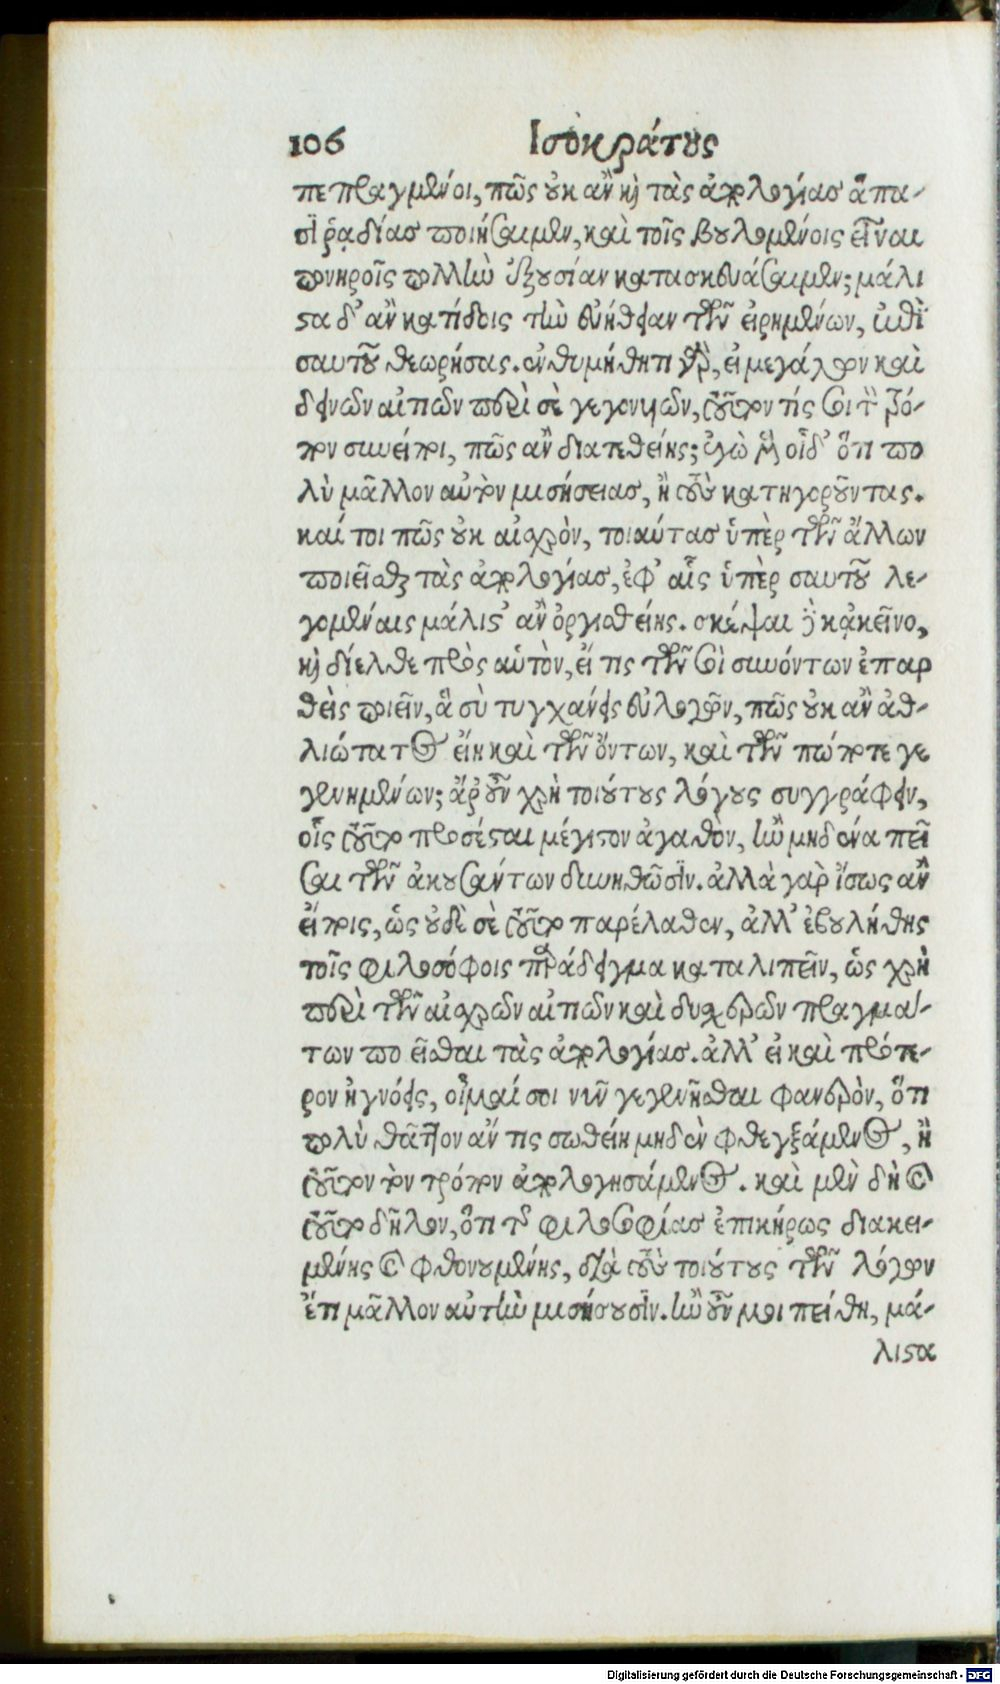 106 Ἰσοκράτους
πεπραγμένοι, πῶς οὐκ ἂν καὶ τὰς ἀπολογίας ἅπα-
σι ῥᾳδίας ποιήσαιμεν, καὶ τοῖς βουλομένοις εἶναι
πονηροῖς πολλὴν ἐξουσίαν κατασκευάσαιμεν; μάλι
στα δ' ἂν κατίδοις τὴν εὐήθειαν τῶν εἰρημένων, ἐπὶ
σαυτοῦ θεωρήσας. ἐνθυμήθητι γὰρ, εἰ μεγάλων καὶ
δεινῶν αἰτιῶν περὶ σὲ γεγονυιῶν, τοῦτον τίς σοι τὸν τρό-
πον συνείποι, πῶς ἂν διατεθείης; ἐγὼ μὲν οἶδ' ὅτι πο
λὺ μᾶλλον αὐτὸν μισήσειας, ἢ τοὺς κατηγοροῦντας.
καί τοι πῶς οὐκ αἰσχρὸν, τοιαύτας ὑπὲρ τῶν ἄλλων
ποιεῖσθαι τὰς ἀπολογίας, ἐφ' αἷς ὑπὲρ σαυτοῦ λε-
γομέναις μάλιστ' ἂν ὀργισθείης. σκέψαι δὲ κᾀκεῖνο,
καὶ δίελθε πρὸς αὑτὸν, εἴ τις τῶν σοὶ συνόντων ἐπαρ
θεὶς ποιεῖν, ἃ σὺ τυγχάνεις εὐλογῶν, πῶς οὐκ ἂν ἀθ-
λιώτατος εἴη καὶ τῶν ὄντων, καὶ τῶν πώποτε γε
γενημένων; ἆρ' οὖν χρὴ τοιούτους λόγους συγγράφειν,
οἷς τοῦτο προσέσται μέγιστον ἀγαθὸν, ἢν μηδένα πεῖ
σαι τῶν ἀκουσάντων δυνηθῶσιν. ἀλλὰ γὰρ ἴσως ἂν
εἴποις, ὡς οὐδὲ σὲ τοῦτο παρέλαθεν, ἀλλ' ἐβουλήθης
τοῖς φιλοσόφοις παράδειγμα καταλιπεῖν, ὡς χρὴ
περὶ τῶν αἰσχρῶν αἰτιῶν καὶ δυσχερῶν πραγμά-
των ποιεῖσθαι τὰς ἀπολογίας. ἀλλ' εἰ καὶ πρότε-
ρον ἠγνόεις, οἶμαί σοι νῦν γεγενῆσθαι φανερὸν, ὅτι
πολὺ θᾶττον ἄν τις σωθείη μηδὲν φθεγξάμενος, ἢ
τοῦτον τὸν τρόπον ἀπολογησάμενος. καὶ μὲν δὴ καὶ
τοῦτο δῆλον, ὅτι τῆς φιλοσοφίας ἐπικήρως διακει-
μένης καὶ φθονουμένης, διὰ τοὺς τοιούτους τῶν λόγων
ἔτι μᾶλλον αὐτὴν μισήσουσιν. ἢν οὖν μοι πείθῃ, μά-
λιστα
Digitalisierung gefördert durch die Deutsche Forschungsgemeinschaft - DFG